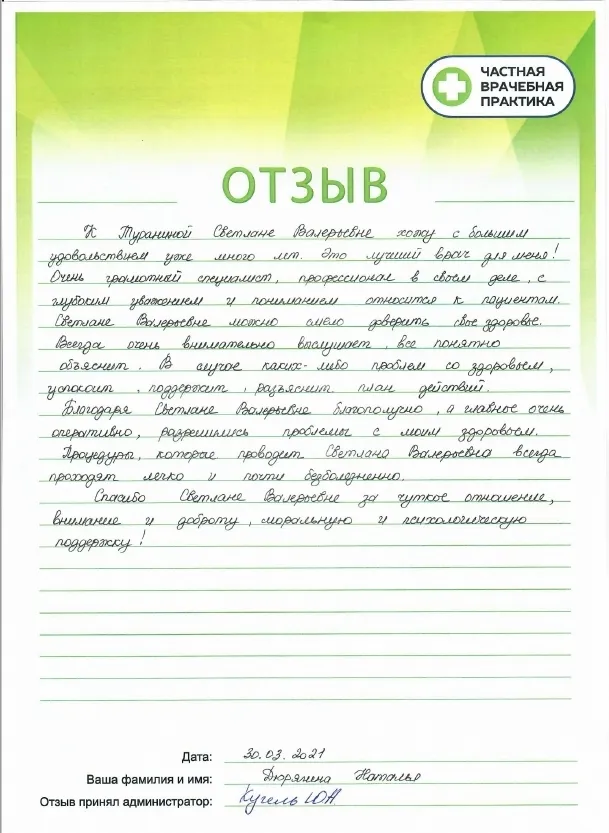 ЧАСТНАЯ
ВРАЧЕБНАЯ
ПРАКТИКА
ОТЗЫВ
К Тураниной Светлане Валерьевне хожу с большим
удовольствием уже много лет. Это лучший врач для меня!
Очень грамотный специалист, профессионал в своем деле, с
глубоким уважением и пониманием относится к пациентам.
Светлане Валерьевне можно смело доверить свое здоровье.
Всегда очень внимательно выслушает, все понятно
объяснит. В случае каких-либо проблем со здоровьем,
успокоит, поддержит, разъяснит план действий.
Благодаря Светлане Валерьевне благополучно, а главное очень
оперативно, разрешились проблемы с моим здоровьем.
Процедуры, которые проводит Светлана Валерьевна всегда
проходят легко и почти безболезненно.
Спасибо Светлане Валерьевне за чуткое отношение,
внимание и доброту, моральную и психологическую
поддержку!
Дата: 30.03.2021
Ваша фамилия и имя: Дюрягина Наталья
Отзыв принял администратор: Кугель ЮН